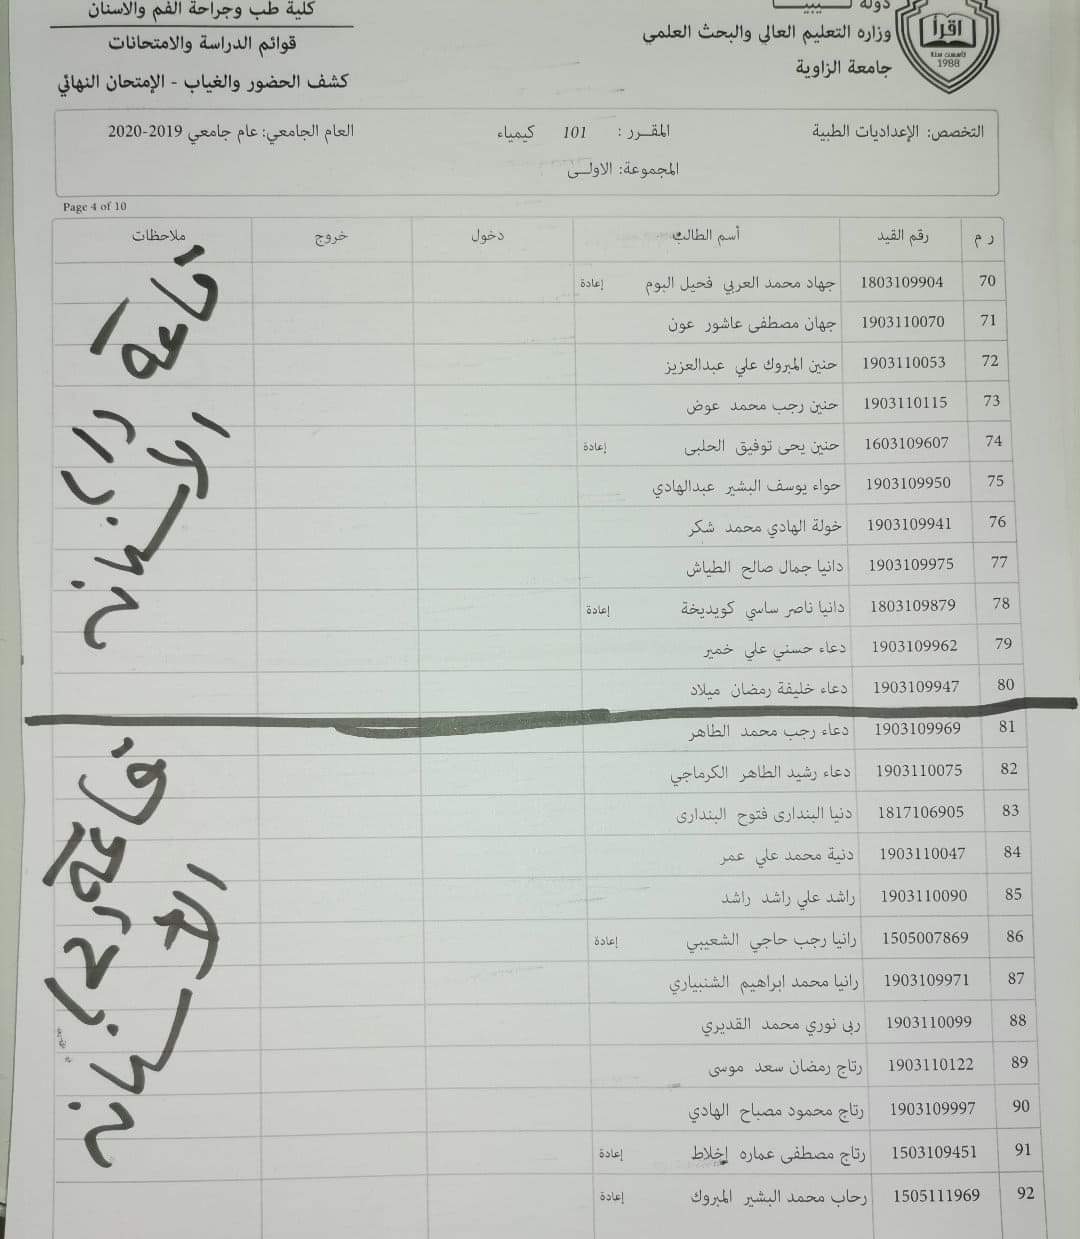 كلية طب وجراحة الفم والاسنان
قوائم الدراسة والامتحانات
كشف الحضور والغياب - الإمتحان النهائي
دولة ليبيا
وزاره التعليم العالي والبحث العلمي
جامعة الزاوية
اقرأ
1988
التخصص: الإعداديات الطبية المقرر : 101 كيمياء العام الجامعي: عام جامعي 2019-2020
المجموعة: الاولى
Page 4 of 10
ر م رقم القيد أسم الطالب دخول خروج ملاحظات
70 1803109904 جهاد محمد العربي فحيل البوم إعادة
71 1903110070 جهان مصطفى عاشور عون
72 1903110053 حنين المبروك علي عبدالعزيز
73 1903110115 حنين رجب محمد عوض
74 1603109607 حنين يحى توفيق الحلبى إعادة
75 1903109950 حواء يوسف البشير عبدالهادي
76 1903109941 خولة الهادي محمد شكر
77 1903109975 دانيا جمال صالح الطياش
78 1803109879 دانيا ناصر ساسي كويديخة إعادة
79 1903109962 دعاء حسني علي خمير
80 1903109947 دعاء خليفة رمضان ميلاد
81 1903109969 دعاء رجب محمد الطاهر
82 1903110075 دعاء رشيد الطاهر الكرماجي
83 1817106905 دنيا البندارى فتوح البندارى
84 1903110047 دنية محمد علي عمر
85 1903110090 راشد علي راشد راشد
86 1505007869 رانيا رجب حاجي الشعيبي إعادة
87 1903109971 رانيا محمد ابراهيم الشنبياري
88 1903110099 ربى نوري محمد القديري
89 1903110122 رتاج رمضان سعد موسى
90 1903109997 رتاج محمود مصباح الهادي
91 1503109451 رتاج مصطفى عماره إخلاط إعادة
92 1505111969 رحاب محمد البشير المبروك إعادة
قاعة
قاعة